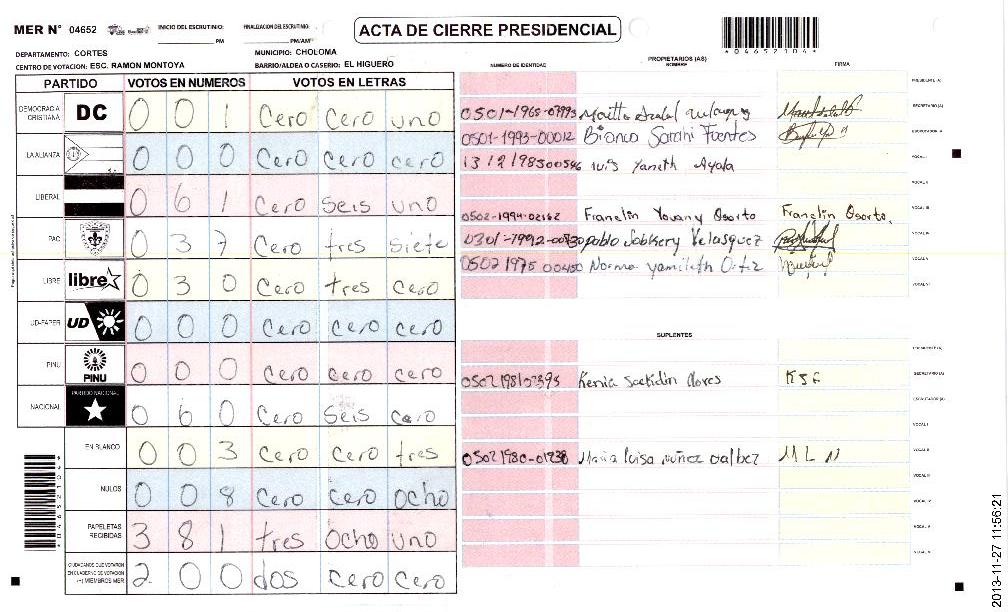 MER N° 04652 INICIO DEL ESCRUTINIO: PM FINALIZACION DEL ESCRUTINIO: PM/AM
ACTA DE CIERRE PRESIDENCIAL
*04652104*
DEPARTAMENTO: CORTES MUNICIPIO: CHOLOMA
CENTRO DE VOTACION: ESC. RAMON MONTOYA BARRIO/ALDEA O CASERIO: EL HIGUERO
PARTIDO VOTOS EN NUMEROS VOTOS EN LETRAS
DEMOCRACIA CRISTIANA DC 0 0 1 Cero Cero uno
LA ALIANZA 0 0 0 Cero Cero cero
LIBERAL 0 6 1 Cero Seis uno
PAC 0 3 7 Cero tres siete
LIBRE libre 0 3 0 Cero tres Cero
UD-FAPER UD 0 0 0 Cero Cero Cero
PINU PINU 0 0 0 Cero Cero cero
NACIONAL PARTIDO NACIONAL 0 6 0 Cero Seis Cero
EN BLANCO 0 0 3 Cero Cero tres
NULOS 0 0 8 Cero cero ocho
PAPELETAS RECIBIDAS 3 8 1 tres ocho uno
CIUDADANOS QUE VOTARON EN CUADERNO DE VOTACION (+) MIEMBROS MER 2 0 0 dos Cero Cero
NUMERO DE IDENTIDAD PROPIETARIOS (AS) NOMBRE FIRMA
PRESIDENTE (A)
SECRETARIO (A)
0501-1993-00012 Bianca Sarahi Fuentes ESCRUTADOR A
Yaneth Ayala VOCAL I
VOCAL II
0502-1994-02162 Franclin Yovany Osorto Franclin Osorto. VOCAL III
Pablo Velasquez VOCAL IV
0502 1975 00450 Norma Yamileth Ortiz VOCAL V
VOCAL VI
SUPLENTES
PRESIDENTE (A)
Kenia KSF SECRETARIO (A)
ESCRUTADOR (A)
VOCAL I
0502 1980-01938 Maria luisa nuñez MLN VOCAL II
VOCAL III
VOCAL IV
VOCAL V
VOCAL VI
2013-11-27 11:56:21